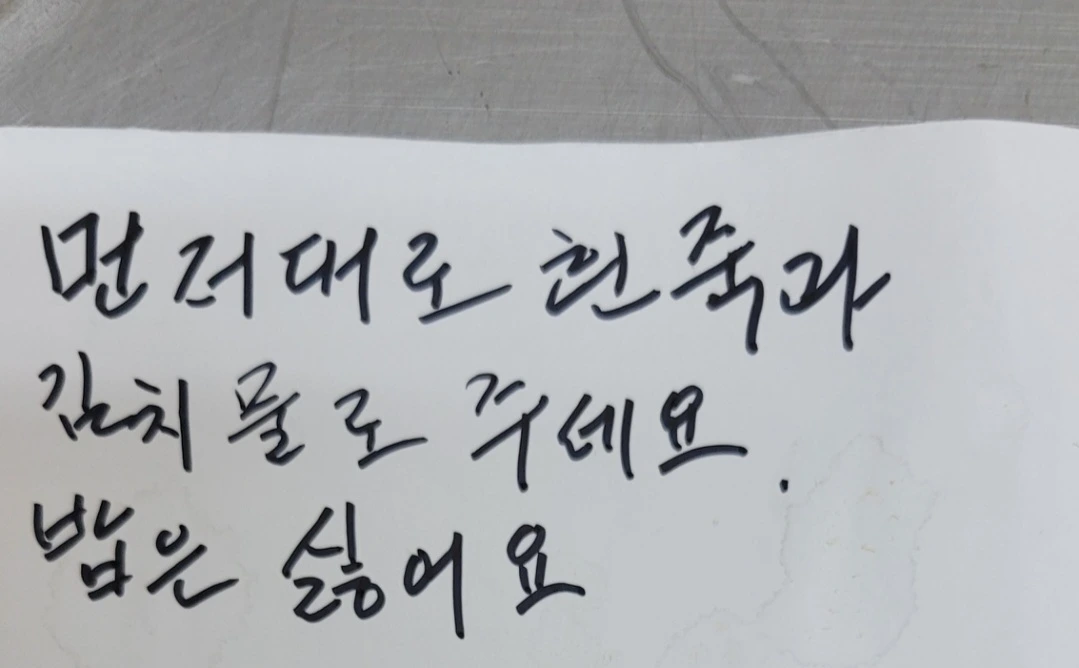 먼저대로 흰죽과
김치물로 주세요.
밥은 싫어요